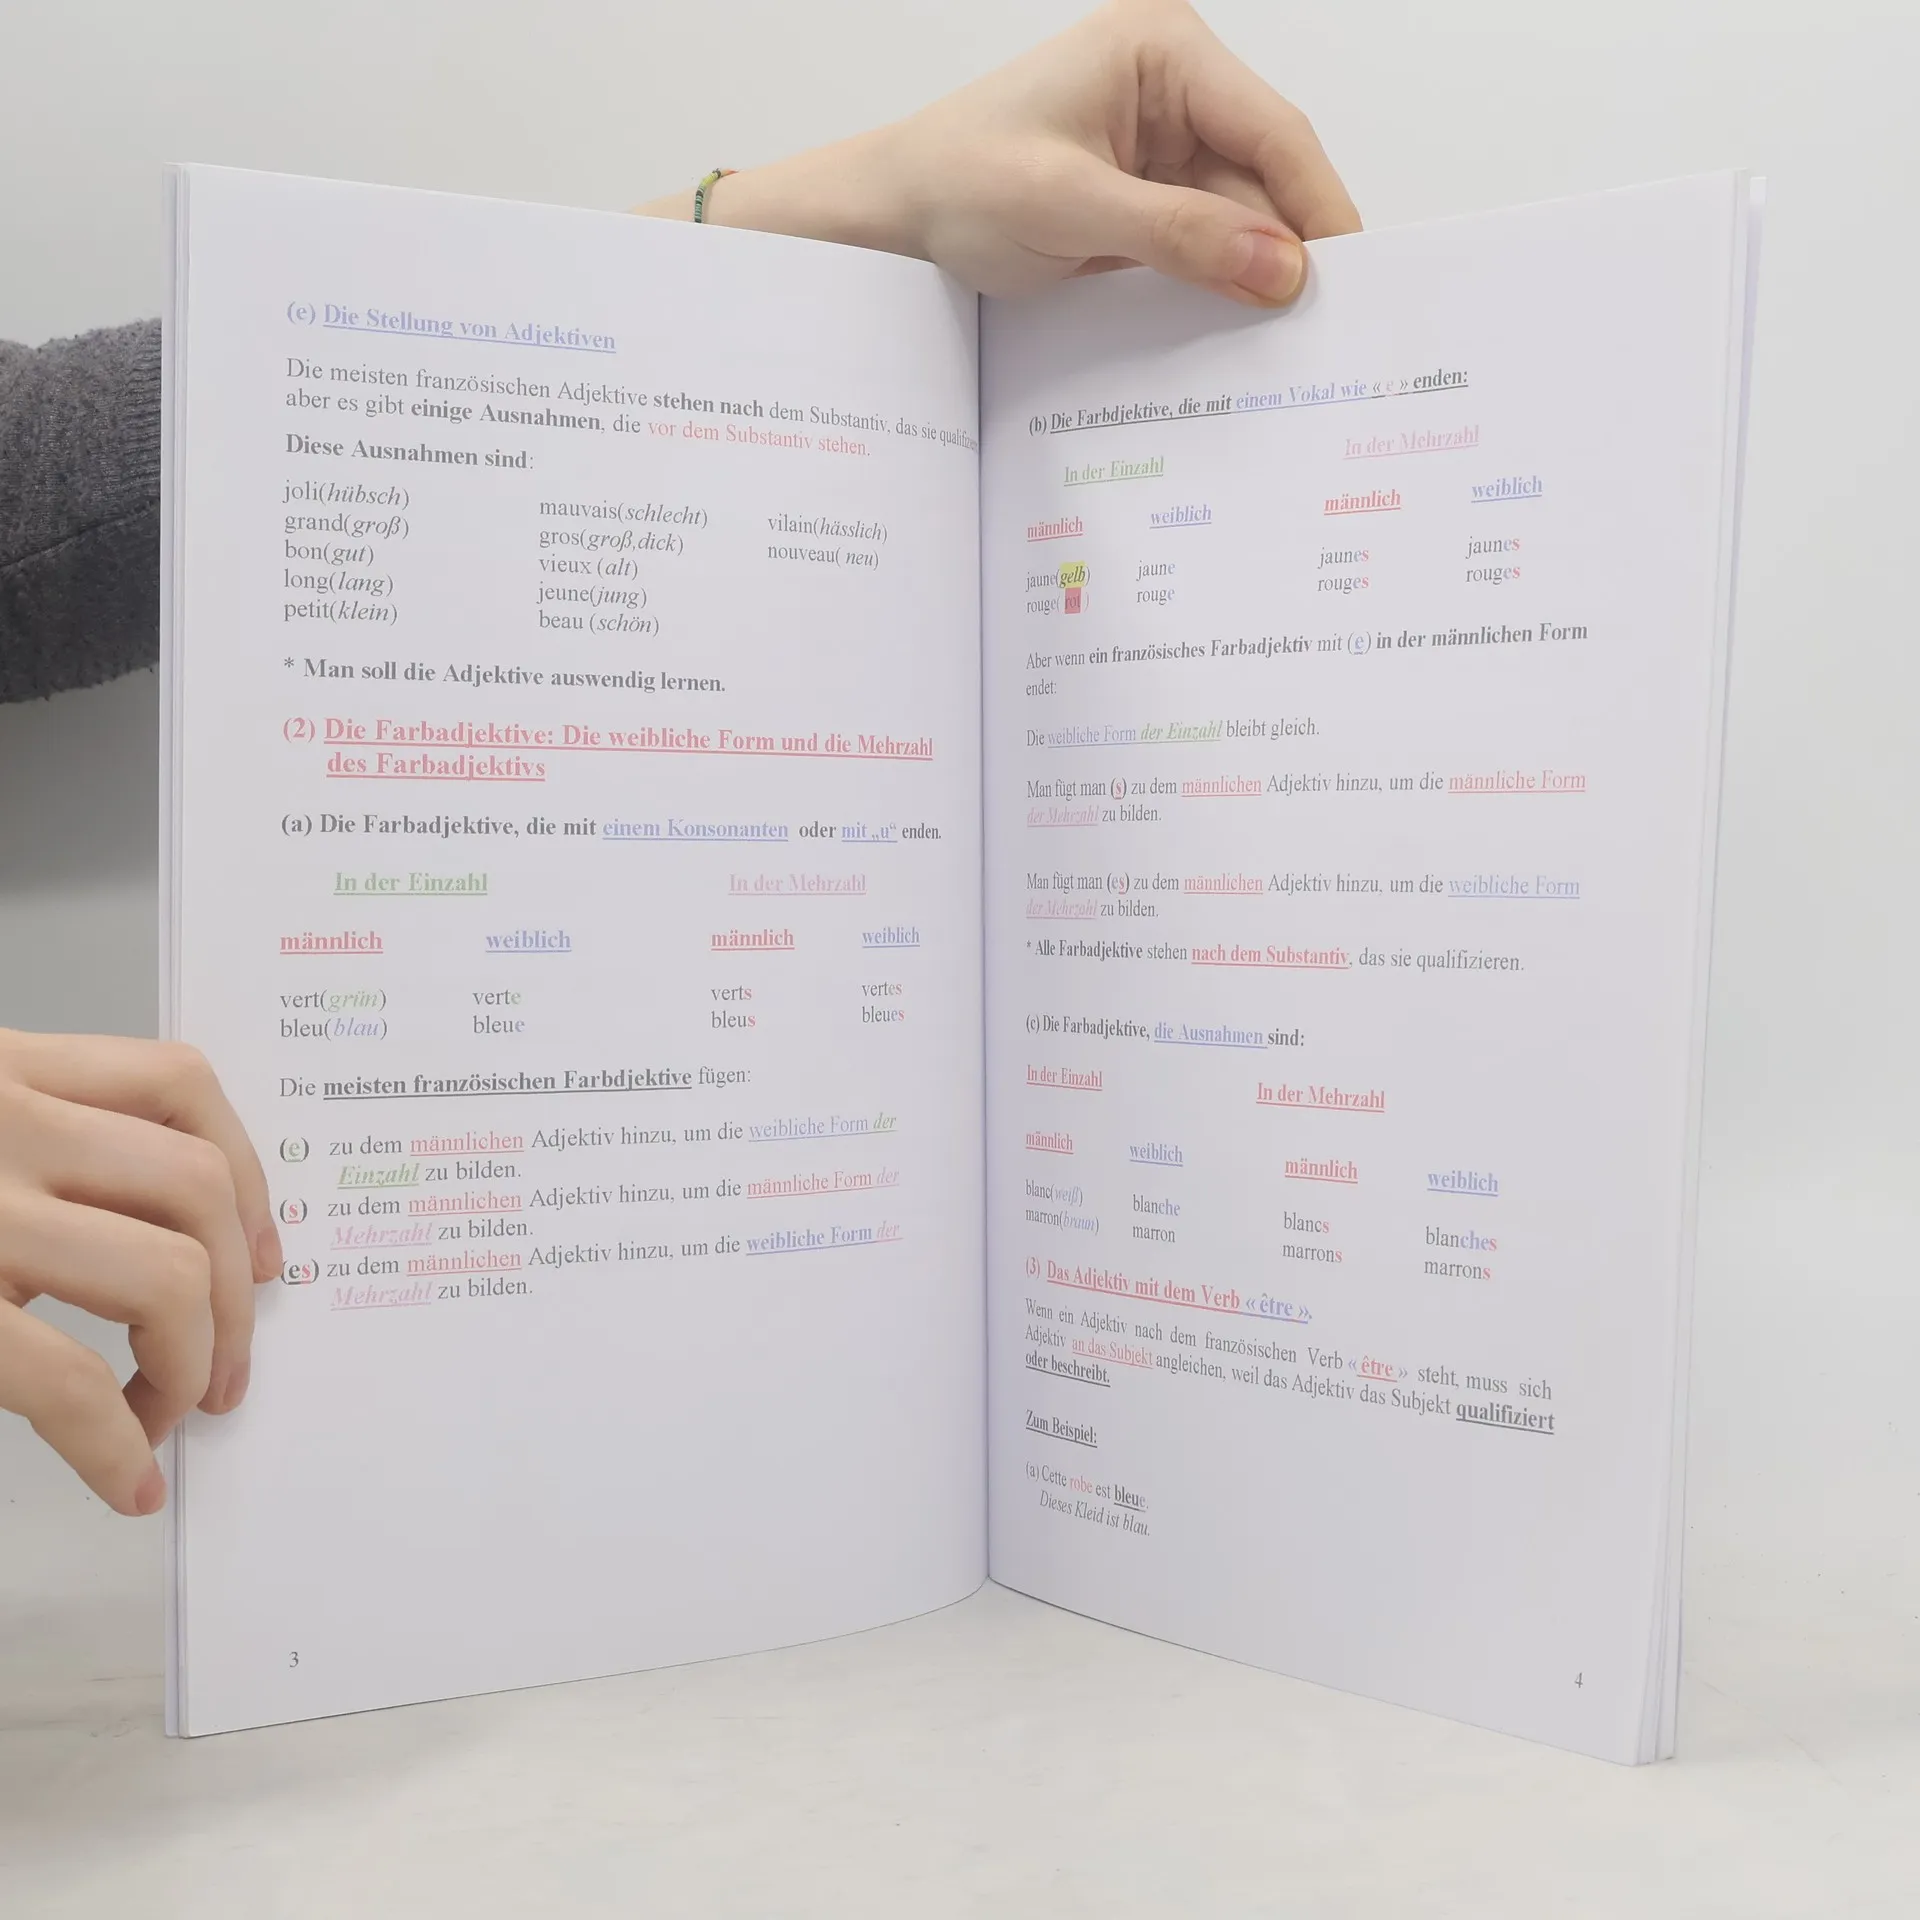 (e) Die Stellung von Adjektiven
Die meisten französischen Adjektive stehen nach dem Substantiv, das sie
aber es gibt einige Ausnahmen, die vor dem Substantiv stehen.
Diese Ausnahmen sind:
joli(hübsch) mauvais(schlecht) vilain(hässlich)
grand(groß) gros(groß,dick) nouveau( neu)
bon(gut) vieux (alt)
long(lang) jeune(jung)
petit(klein) beau (schön)
* Man soll die Adjektive auswendig lernen.
(2) Die Farbadjektive: Die weibliche Form und die Mehrzahl
des Farbadjektivs
(a) Die Farbadjektive, die mit einem Konsonanten oder mit „u“ enden.
In der Einzahl In der Mehrzahl
männlich weiblich männlich weiblich
vert(grün) verte verts vertes
bleu(blau) bleue bleus bleues
Die meisten französischen Farbdjektive fügen:
(e) zu dem männlichen Adjektiv hinzu, um die weibliche Form der
Einzahl zu bilden.
(s) zu dem männlichen Adjektiv hinzu, um die männliche Form der
Mehrzahl zu bilden.
(es) zu dem männlichen Adjektiv hinzu, um die weibliche Form der
Mehrzahl zu bilden.
3
(b) Die Farbdjektive, die mit einem Vokal wie « e » enden:
In der Einzahl In der Mehrzahl
männlich weiblich männlich weiblich
jaune(gelb) jaune jaunes jaunes
rouge( rot ) rouge rouges rouges
Aber wenn ein französisches Farbadjektiv mit (e) in der männlichen Form
endet:
Die weibliche Form der Einzahl bleibt gleich.
Man fügt man (s) zu dem männlichen Adjektiv hinzu, um die männliche Form
der Mehrzahl zu bilden.
Man fügt man (es) zu dem männlichen Adjektiv hinzu, um die weibliche Form
der Mehrzahl zu bilden.
* Alle Farbadjektive stehen nach dem Substantiv, das sie qualifizieren.
(c) Die Farbadjektive, die Ausnahmen sind:
In der Einzahl In der Mehrzahl
männlich weiblich männlich weiblich
blanc(weiß) blanche blancs blanches
marron(braun) marron marrons marrons
(3) Das Adjektiv mit dem Verb « être ».
Wenn ein Adjektiv nach dem französischen Verb « être » steht, muss sich
Adjektiv an das Subjekt angleichen, weil das Adjektiv das Subjekt qualifiziert
oder beschreibt.
Zum Beispiel:
(a) Cette robe est bleue.
Dieses Kleid ist blau.
4